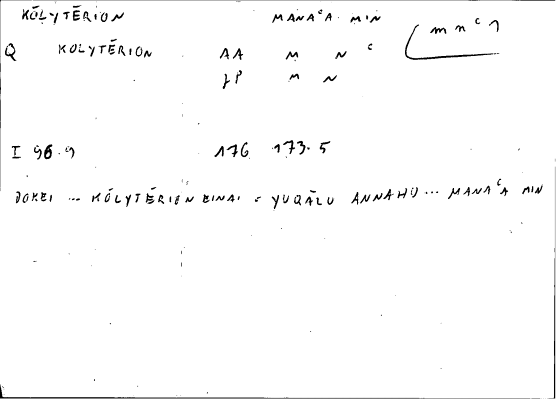 KŌLYTĒRION MANAᶜA MIN (mnᶜ1
Q KOLYTĒRION AA M N ᶜ
JP M N
I 96.9 176 173.5
DOKEI ... KŌLYTĒRION EINAI = YUQĀLU ANNAHU ... MANAᶜA MIN